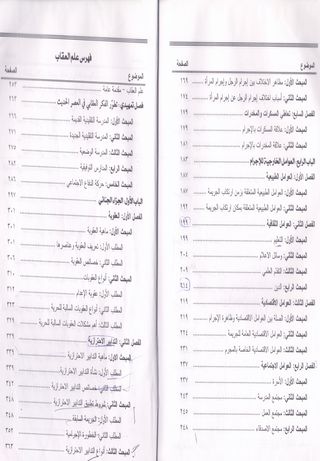 الموضوع الصفحة
المبحث الأول: مظاهر الاختلاف بين إجرام الرجل عن إجرام المرأة ١٦٩
المبحث الثاني: أسباب اختلاف إجرام الرجل عن إجرام المرأة ١٧٤
الفصل السابع: تعاطي المسكرات والمخدرات ١٧٩
المبحث الأول: ماهية المسكرات والمخدرات
المبحث الثاني: علاقة المسكرات بالإجرام
الباب الرابع: العوامل الخارجية للإجرام ١٨٣
الفصل الأول: العوامل الطبيعية
المبحث الأول: العوامل الطبيعية المتعلقة بزمن ارتكاب الجريمة
المبحث الثاني: العوامل الطبيعية المتعلقة بمكان ارتكاب الجريمة
الفصل الثاني: العوامل الثقافية ١٩٩
المبحث الأول: التعليم
المبحث الثاني: وسائل الإعلام ٢٠٥
المبحث الثالث: التقدم العلمي
المبحث الرابع: الدين ٢١٤
الفصل الثالث: العوامل الاقتصادية
المبحث الأول: الصلة بين العوامل الاقتصادية وظاهرة الإجرام
المبحث الثاني: العوامل الاقتصادية العامة للجريمة
المبحث الثالث: العوامل الاقتصادية الخاصة بالمجرم
الفصل الرابع: العوامل الاجتماعية
المبحث الأول: الأسرة
المبحث الثاني: مجتمع المدرسة
المبحث الثالث: مجتمع العمل
المبحث الرابع: مجتمع الأصدقاء ٢٤٨
فهرس علم العقاب
الموضوع الصفحة
علم العقاب - مقدمة عامة ٢٥٣
فصل تمهيدي: تطور الفكر العقابي في العصر الحديث
المبحث الأول: المدرسة التقليدية القديمة
المبحث الثاني: المدرسة التقليدية الجديدة
المبحث الثالث: المدرسة الوضعية
المبحث الرابع: المدارس التوفيقية
المبحث الخامس: حركة الدفاع الاجتماعي
الباب الأول: الجزاء الجنائي ٢٩٧
الفصل الأول: العقوبة ٣٠١
المبحث الأول: ماهية العقوبة ٣٠١
المطلب الأول: تعريف العقوبة وعناصرها
المطلب الثاني: خصائص العقوبة
المبحث الثاني: أنواع العقوبات
المطلب الأول: عقوبة الإعدام
المطلب الثاني: العقوبات السالبة للحرية
المطلب الثالث: أهم مشكلات العقوبات السالبة للحرية
الفصل الثاني: التدابير الاحترازية
المبحث الأول: ماهية التدابير الاحترازية ٣٣٩
المطلب الأول: نشأة التدابير الاحترازية ٣٣٩
المطلب الثاني: خصائص التدابير الاحترازية
المبحث الثاني: شروط تطبيق التدابير الاحترازية
المطلب الأول: الجريمة السابقة
المطلب الثاني: الخطورة الإجرامية ٣٤٨
المبحث الثالث: أنواع التدابير الاحترازية ٣٦٢